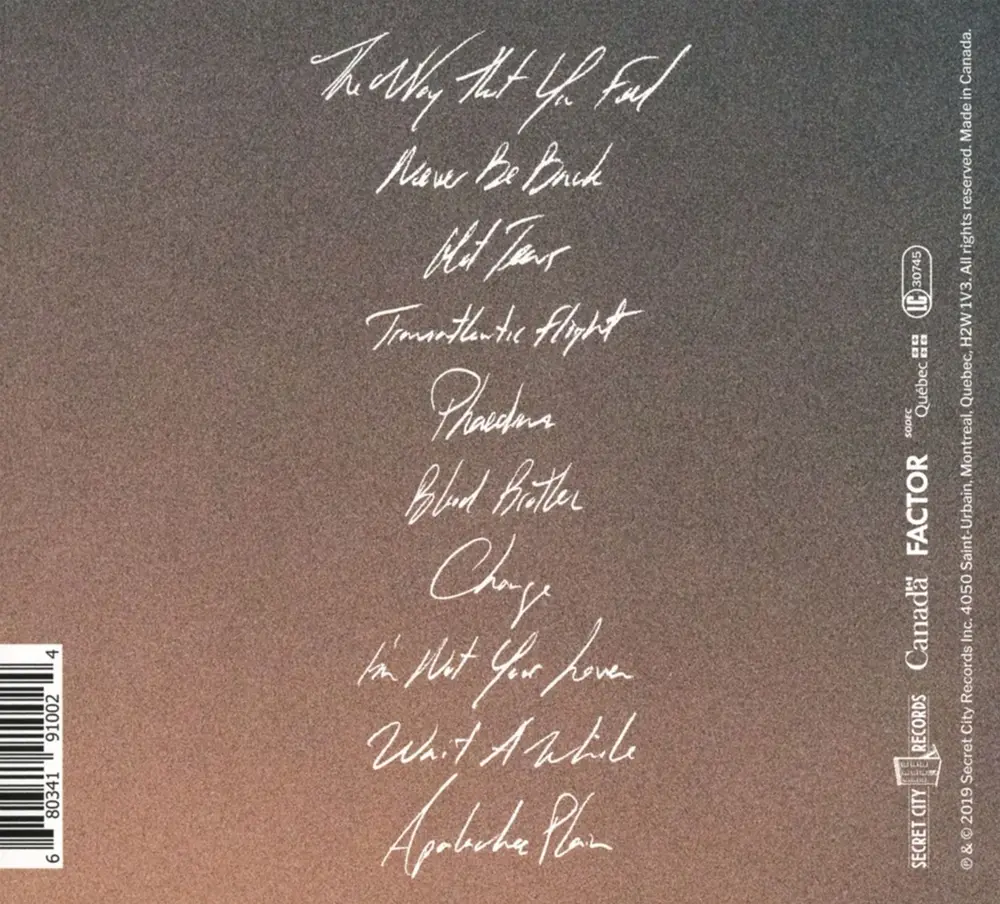 The Way That You Feel
Never Be Back
Hot Tears
Transatlantic Flight
Phaedrus
Blood Brother
Change
I'm Not Your Lover
Wait A While
Apalachee Plain
6 80341 91002 4
SECRET CITY RECORDS
Canada
FACTOR
SODEC
Québec
LC 30745
℗ & © 2019 Secret City Records Inc. 4050 Saint-Urbain, Montreal, Quebec, H2W 1V3. All rights reserved. Made in Canada.